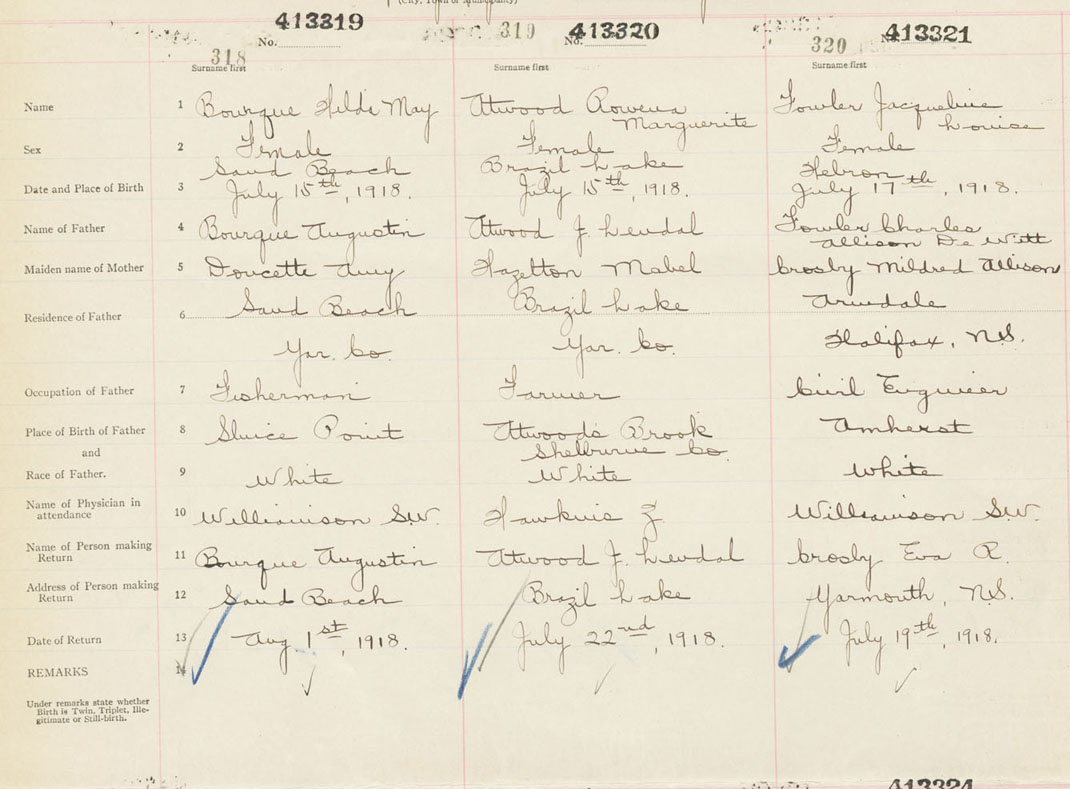 (City, Town or Municipality)
413319 413320 413321
318 No. 319 No. 320 No.
Surname first Surname first Surname first
Name 1 Bourque Hilda May Attwood Rowena Marguerite Fowler Jacqueline Louise
Sex 2 Female Female Female
Sand Beach Brazil Lake Hebron
Date and Place of Birth 3 July 15th, 1918. July 15th, 1918. July 17th, 1918.
Name of Father 4 Bourque Augustin Attwood J. Lendal Fowler Charles Allison De Witt
Maiden name of Mother 5 Doucette Amy Hazelton Mabel Crosby Mildred Allison
Residence of Father 6 Sand Beach Brazil Lake Armdale
Yar. Co. Yar. Co. Halifax, N.S.
Occupation of Father 7 Fisherman Farmer Civil Engineer
Place of Birth of Father 8 Sluice Point Attwoods Brook Amherst
and Shelburne Co.
Race of Father. 9 White White White
Name of Physician in attendance 10 Williamson S.W. Hawkins Z Williamson S.W.
Name of Person making Return 11 Bourque Augustin Attwood J. Lendal Crosby Eva R.
Address of Person making Return 12 Sand Beach Brazil Lake Yarmouth, N.S.
Date of Return 13 Aug 1st, 1918. July 22nd, 1918. July 19th, 1918.
REMARKS 14
Under remarks state whether
Birth is Twin, Triplet, Ille-
gitimate or Still-birth.
413324